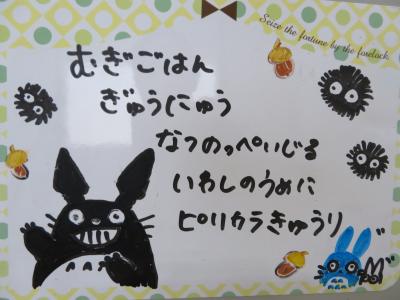 Seize the fortune by the forelock.
むぎごはん
ぎゅうにゅう
なつのっぺいじる
いわしのうめに
ピリカラきゅうり